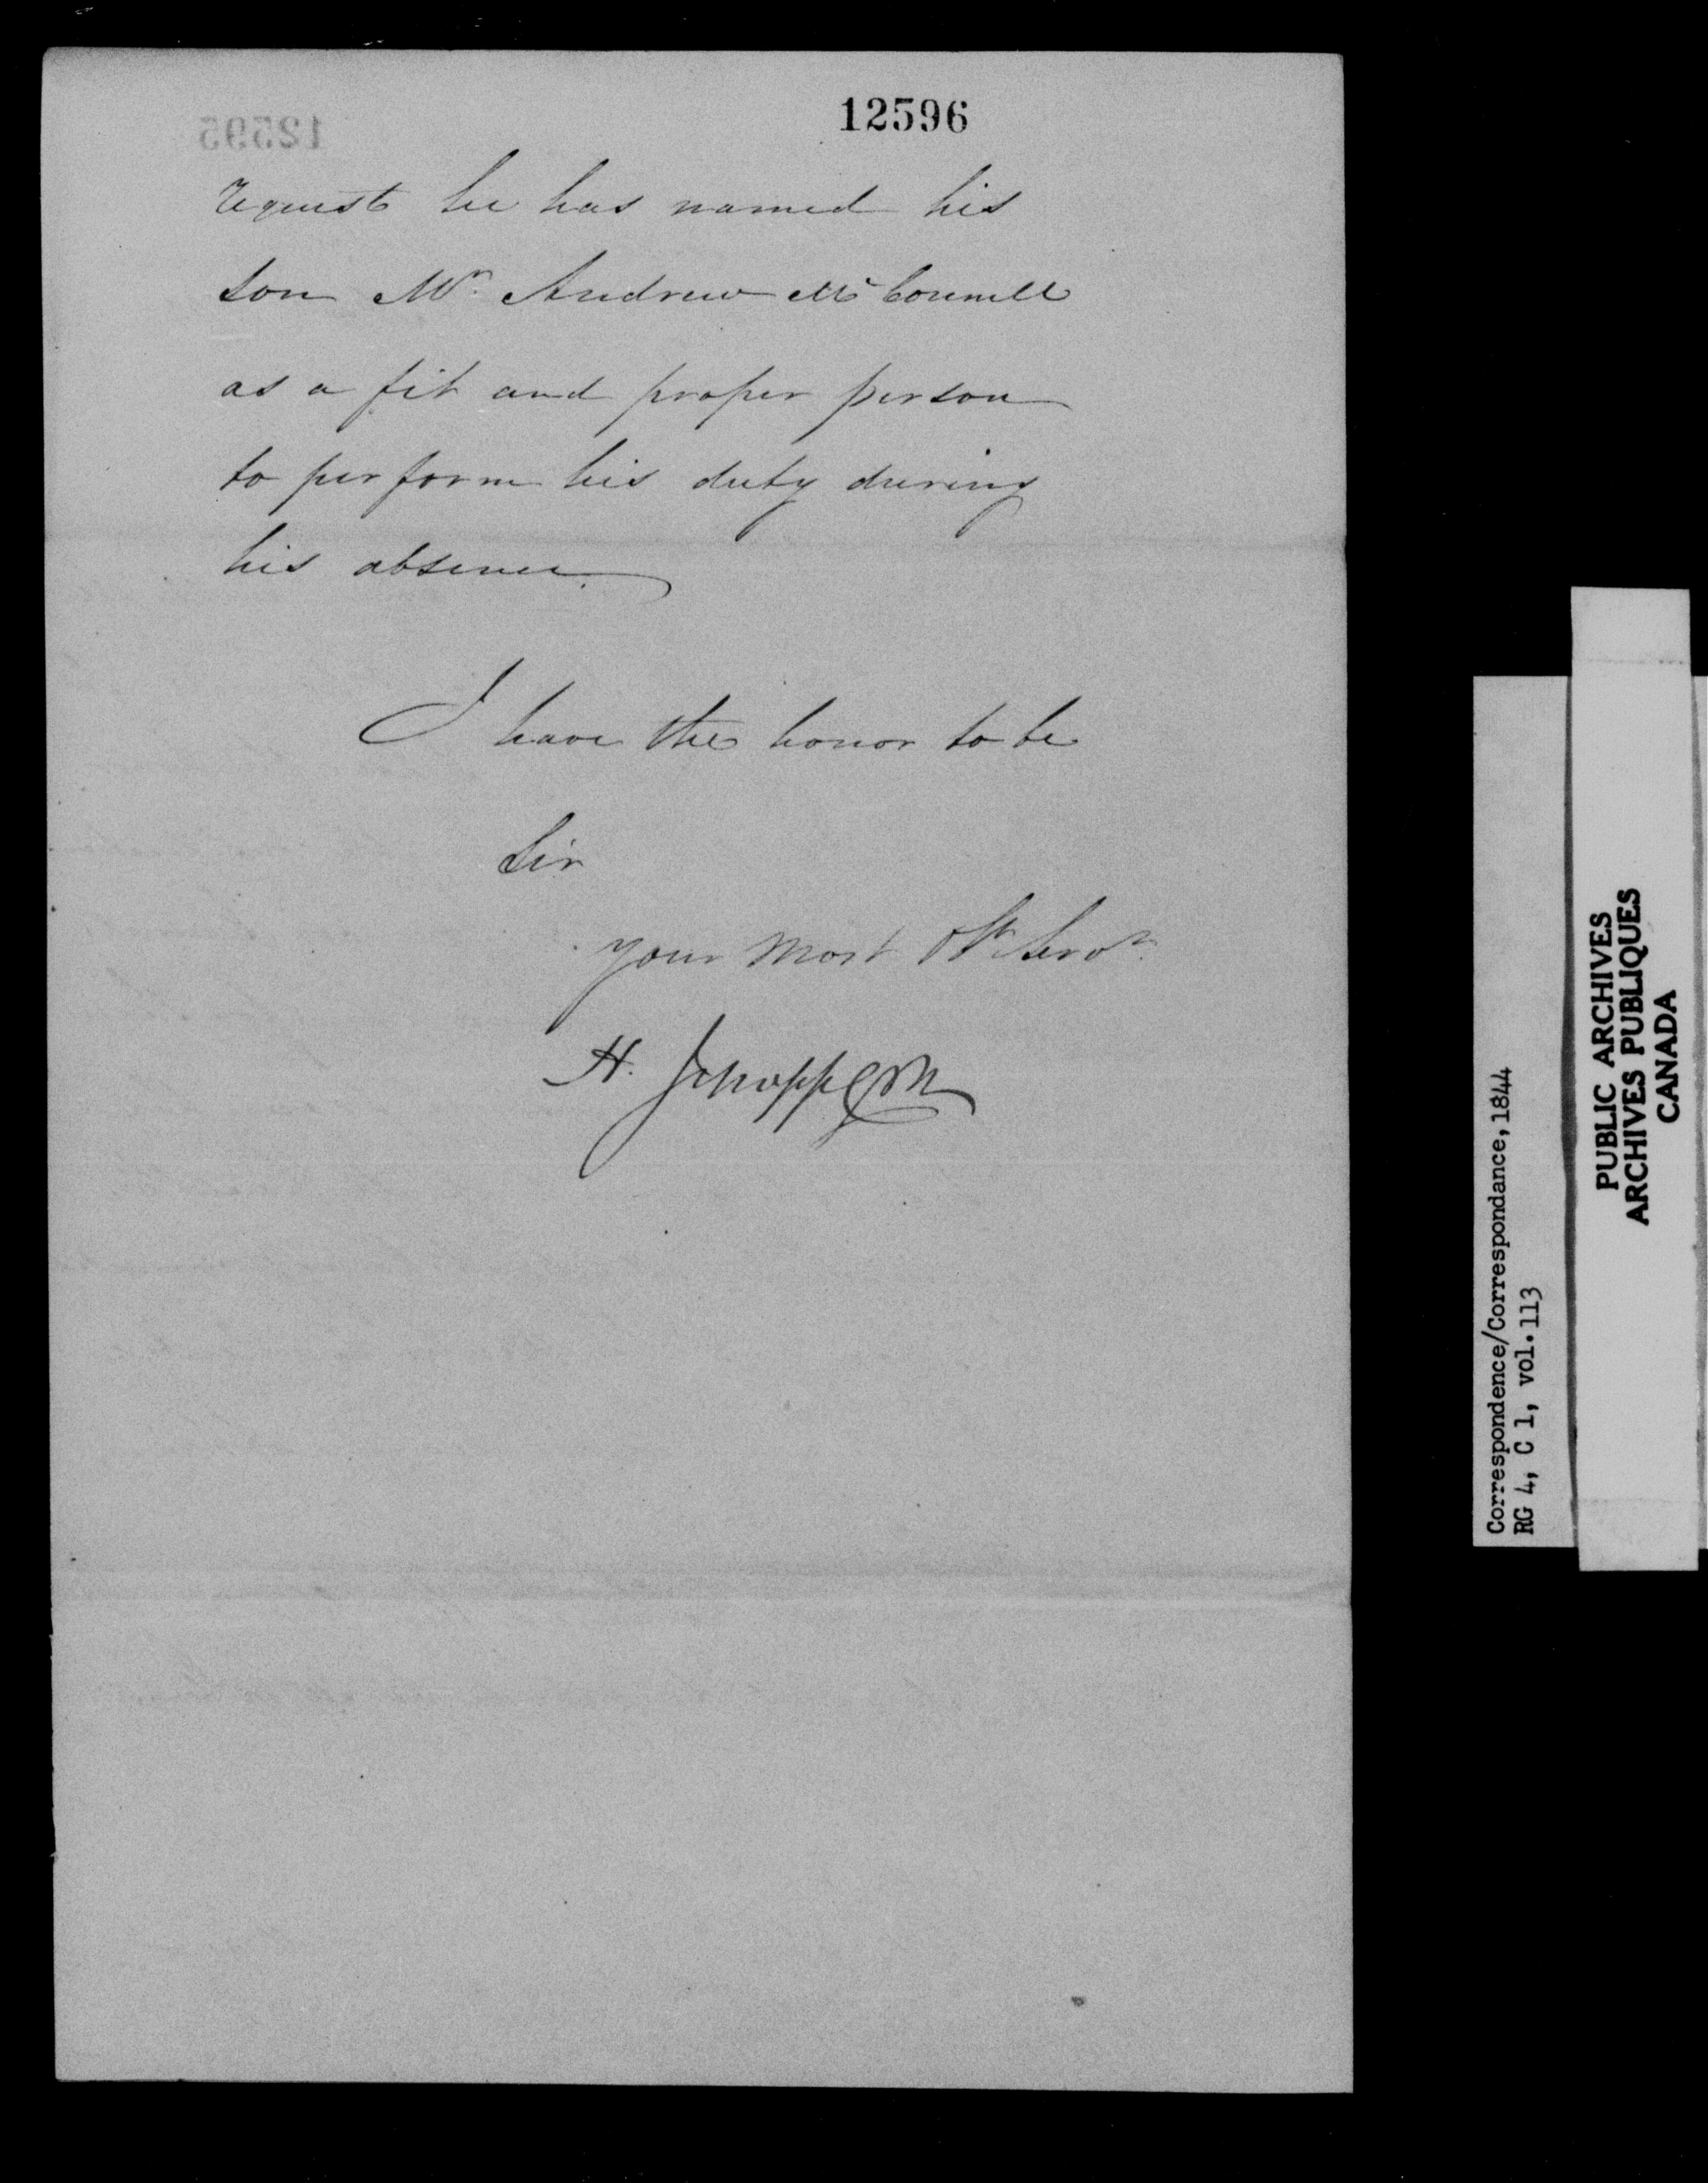 12596
request he has named his
son Mr. Andrew McConnell
as a fit and proper person
to perform his duty during
his absence.
I have the honor to be
Sir
your most Ot Servt.
H.
Correspondence/Correspondance, 1844
RG 4, C 1, vol. 113
PUBLIC ARCHIVES
ARCHIVES PUBLIQUES
CANADA